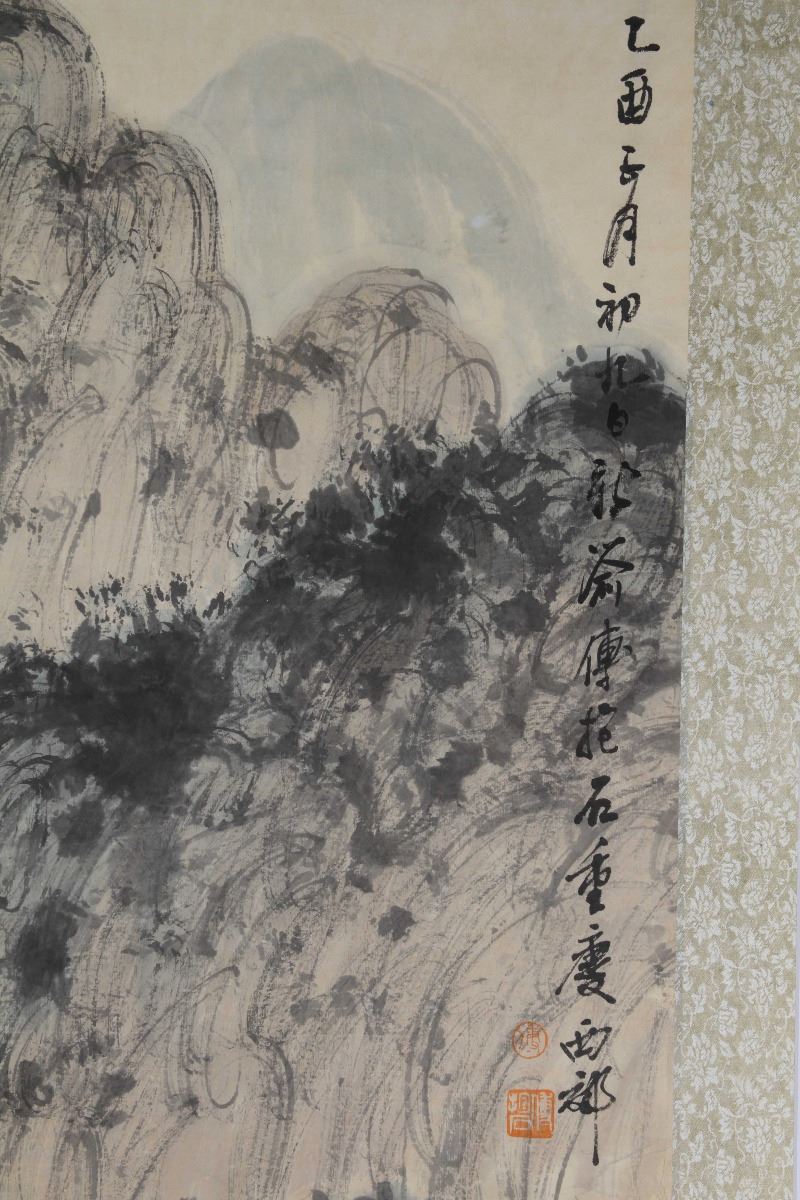 乙酉正月初九日新喻傅抱石重慶西郊
傅